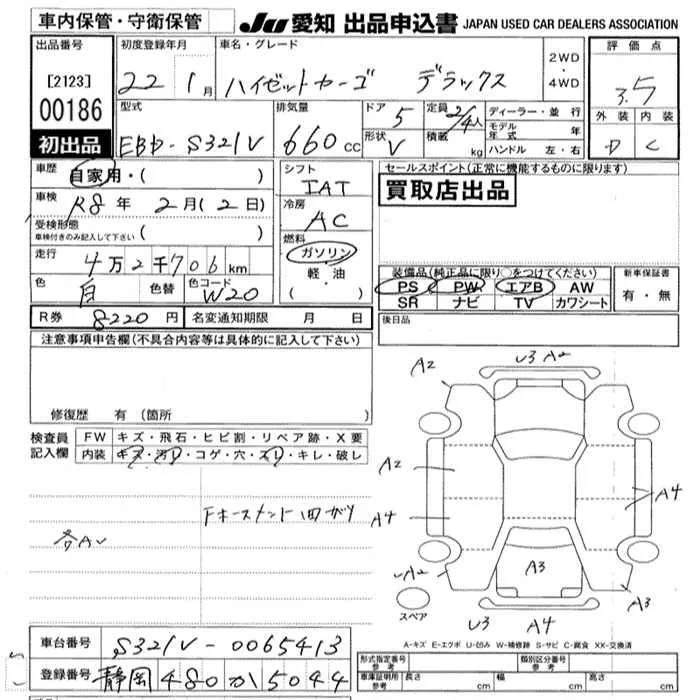 車内保管・守衛保管 JU 愛知 出品申込書 JAPAN USED CAR DEALERS ASSOCIATION
出品番号 初度登録年月 車名・グレード 2WD・4WD 評価点
[2123] 22 1月 ハイゼットカーゴ デラックス 3.5
00186 型式 排気量 ドア 5 定員 2/4人 ディーラー・並行 外装 内装
初出品 EBD-S321V 660cc 形状 V 積載 kg モデル年式 年 D C
ハンドル 左・右
車歴 自家用・( ) シフト セールスポイント(正常に機能するものに限ります)
車検 R8年 2月(2日) IAT 買取店出品
受検形態 冷房
車検付きのみ記入して下さい ( ) AC
走行 4万2千706km 燃料 ガソリン 装備品(純正品に限り○をつけてください) 新車保証書
色 白 色替 色コード W20 軽油 PS PW エアB AW 有・無
・( ) SR ナビ TV カワシート
R券 8220円 名変通知期限 月 日 後日品
注意事項申告欄(不具合内容等は具体的に記入して下さい)
修復歴 有 (箇所
検査員 FW キズ・飛石・ヒビ割・リペア跡・X要
記入欄 内装 キズ・汚レ・コゲ・穴・スレ・キレ・破レ
A2 U3 A2
A2
A4
A4
各AU
A3
A2
A3
スペア U3 A4
A-キズ E-エクボ U-凹み W-補修跡 S-サビ C-腐食 XX-交換済
車台番号 S321V-0065413
形式指定番号 参考 類別区分番号 参考
登録番号 静岡 480 か 5044
車庫証明用 参考 長さ cm 幅 cm 高さ cm